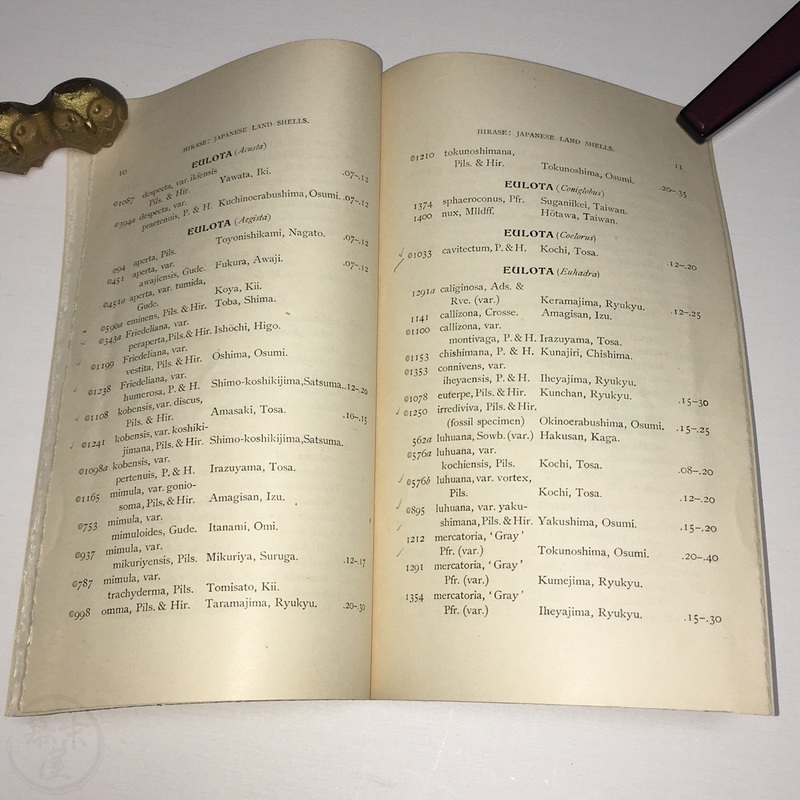 HIRASE: JAPANESE LAND SHELLS.
10
EULOTA (Acusta)
©1087 despecta, var. ikiensis
Pils. & Hir. Yawata, Iki. .07–.12
©394a despecta, var.
praetenuis, P. & H. Kuchinoerabushima, Osumi. .07–.12
EULOTA (Aegista)
©94 aperta, Pils. Toyonishikami, Nagato. .07–.12
©451 aperta, var.
awajiensis, Gude. Fukura, Awaji. .07–.12
©451a aperta, var. tumida,
Gude. Koya, Kii.
©590a eminens, Pils. & Hir. Toba, Shima.
©343a Friedeliana, var.
peraperta, Pils. & Hir. Ishōchi, Higo.
©1199 Friedeliana, var.
vestita, Pils. & Hir. Ōshima, Osumi.
©1238 Friedeliana, var.
humerosa, P. & H. Shimo-koshikijima, Satsuma. .12–.20
©1108 kobensis, var. discus,
Pils. & Hir. Amasaki, Tosa. .10–.15
©1241 kobensis, var. koshiki-
jimana, Pils. & Hir. Shimo-koshikijima, Satsuma.
©1098a kobensis, var.
pertenuis, P. & H. Irazuyama, Tosa.
©1165 mimula, var. gonio-
soma, Pils. & Hir. Amagisan, Izu.
©753 mimula, var.
mimuloides, Gude. Itanami, Omi.
©937 mimula, var.
mikuriyensis, Pils. Mikuriya, Suruga. .12–.17
©787 mimula, var.
trachyderma, Pils. Tomisato, Kii.
©998 omma, Pils. & Hir. Taramajima, Ryukyu. .20–.30
HIRASE: JAPANESE LAND SHELLS.
11
©1210 tokunoshimana,
Pils. & Hir. Tokunoshima, Osumi. .20–.35
EULOTA (Coniglobus)
1374 sphaeroconus, Pfr. Suganiikei, Taiwan.
1400 nux, Mlldff. Hōtawa, Taiwan.
EULOTA (Coelorus)
©1033 cavitectum, P. & H. Kochi, Tosa. .12–.20
EULOTA (Euhadra)
1291a caliginosa, Ads. &
Rve. (var.) Keramajima, Ryukyu. .12–.25
1141 callizona, Crosse. Amagisan, Izu.
©1100 callizona, var.
montivaga, P. & H. Irazuyama, Tosa.
©1153 chishimana, P. & H. Kunajiri, Chishima.
©1353 connivens, var.
iheyaensis, P. & H. Iheyajima, Ryukyu.
©1078 euterpe, Pils. & Hir. Kunchan, Ryukyu. .15–30
©1250 irrediviva, Pils. & Hir.
(fossil specimen) Okinoerabushima, Osumi. .15–.25
562a luhuana, Sowb. (var.) Hakusan, Kaga.
©576a luhuana, var.
kochiensis, Pils. Kochi, Tosa. .08–.20
©576b luhuana, var. vortex,
Pils. Kochi, Tosa. .12–.20
©895 luhuana, var. yaku-
shimana, Pils. & Hir. Yakushima, Osumi. .15–.20
1212 mercatoria, ‘Gray’
Pfr. (var.) Tokunoshima, Osumi. .20–.40
1291 mercatoria, ‘Gray’
Pfr. (var.) Kumejima, Ryukyu.
1354 mercatoria, ‘Gray’
Pfr. (var.) Iheyajima, Ryukyu. .15–.30